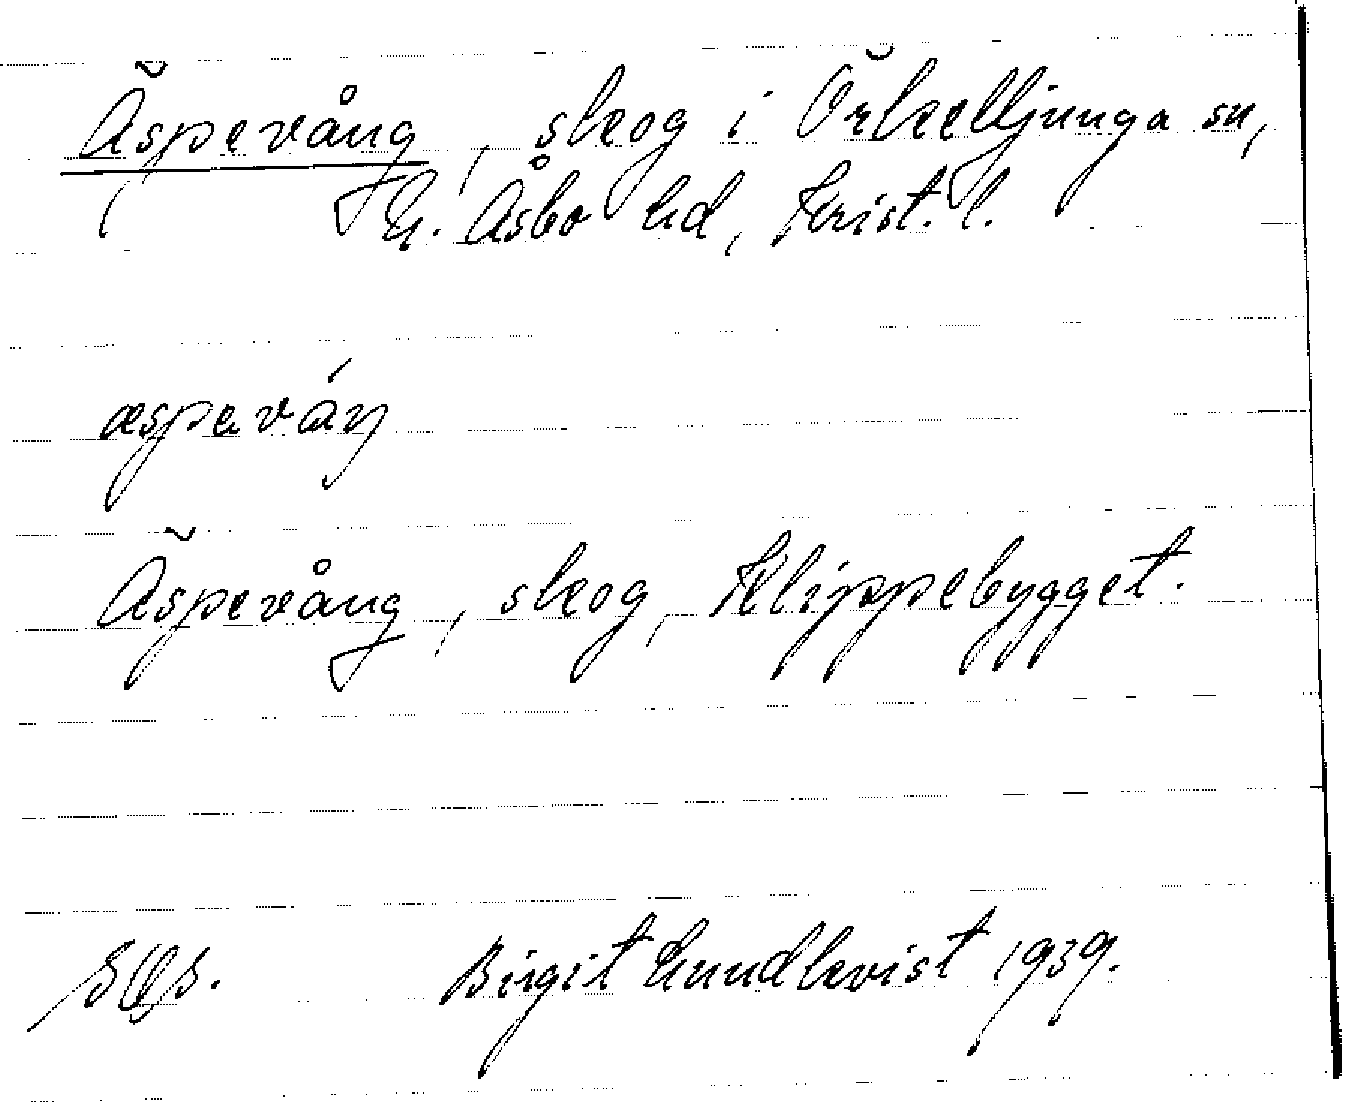 Äspevång, skog i Örkelljunga sn,
N. Åsbo hd, Krist. l.
æspəváŋ
Äspevång, skog, Klippebygget.
Birgit Lundkvist 1939.